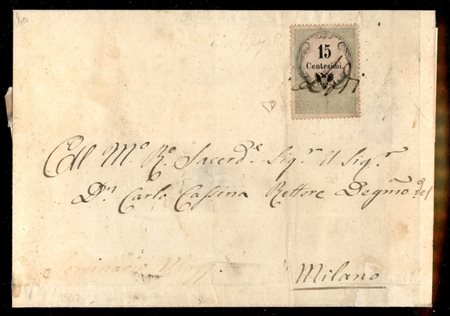 15
Centesimi
All M.º R.º Sacerd.e Sig.r il Sig.r
D.n Carlo Cassina Rettore Degnmo del
Milano